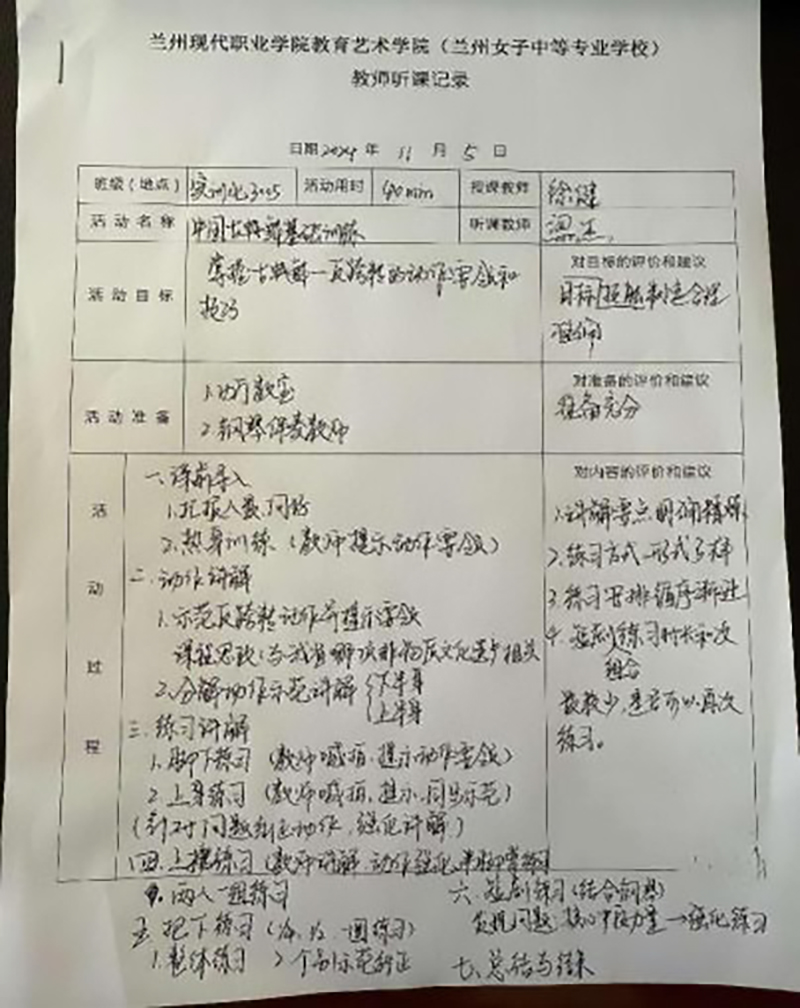 兰州现代职业学院教育艺术学院（兰州女子中等专业学校）
教师听课记录
日期 2024 年 11 月 5 日
班级（地点） 实训北3005 活动用时 40min 授课教师 徐健
活动名称 中国古典舞基础训练 听课教师
活动目标
掌握古典舞—反跨转的动作要领和
技巧
对目标的评价和建议
目标 制定合理
准确
活动准备
1.
2.钢琴伴奏教师
对准备的评价和建议
准备充分
活动过程
一、课前导入
1.汇报人数、问好
2.热身训练（教师提示动作要领）
二、动作讲解
1.示范反跨转动作并提示要领
课程思政：与我省哪项非物质文化遗产相关
2.分解动作示范讲解 下半身
上半身
三、练习讲解
1.脚下练习（教师喊拍、提示动作要领）
2.上身练习（教师喊拍、提示、同步示范）
（针对问题纠正动作，强化讲解）
四、上把练习（教师讲解、动作强化、半脚掌练习
1.两人一组练习
五、把下练习（1/4、1/2、一圈练习）
1.整体练习 2 个别示范纠正
六、 练习（结合钢琴）
发现问题 核心 力量→强化练习
七、总结与结束
对内容的评价和建议
1.讲解要点明确精炼
2.练习方式、形式多样
3.练习安排循序渐进
4. 练习时长和次
组合
数较少，是否可以再次
练习。